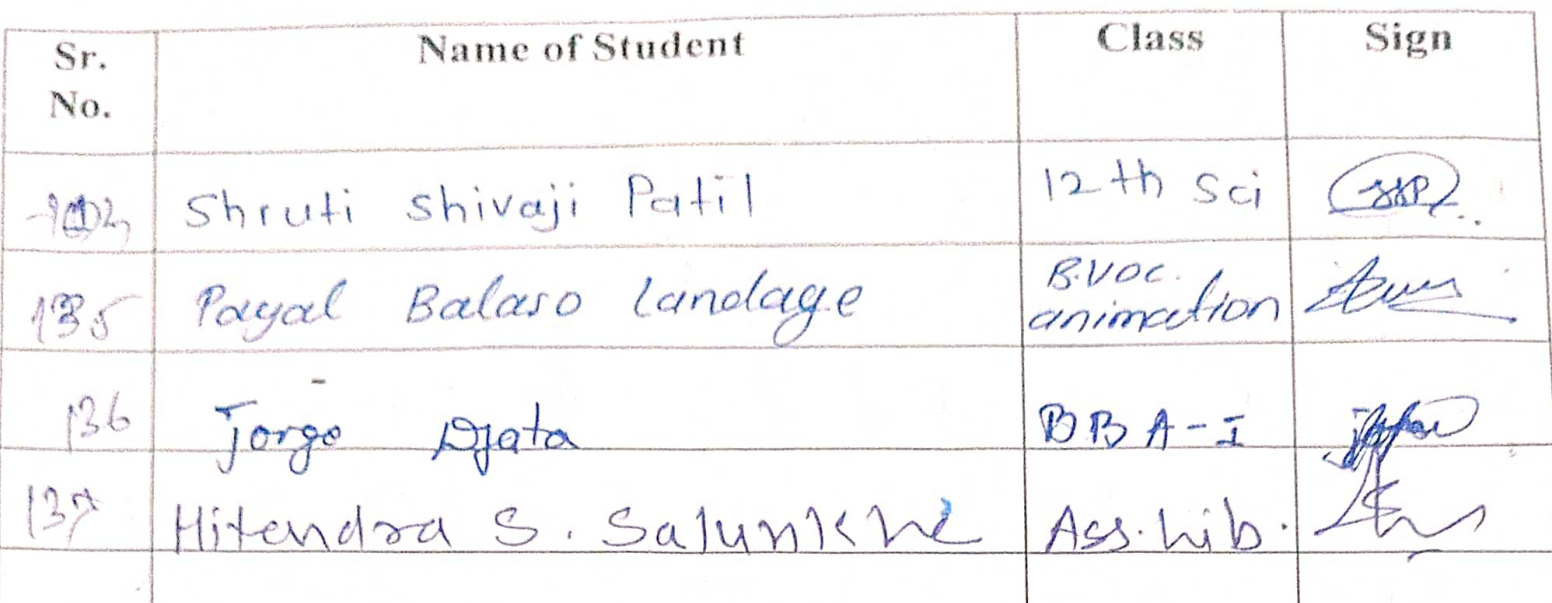 Sr. No. Name of Student Class Sign
Shruti Shivaji Patil 12th Sci
135 Payal Balaso Landage B.VOC. animation
136 Jorge Djata BBA-I
137 Hitendra S. Salunkhe Ass. Lib.